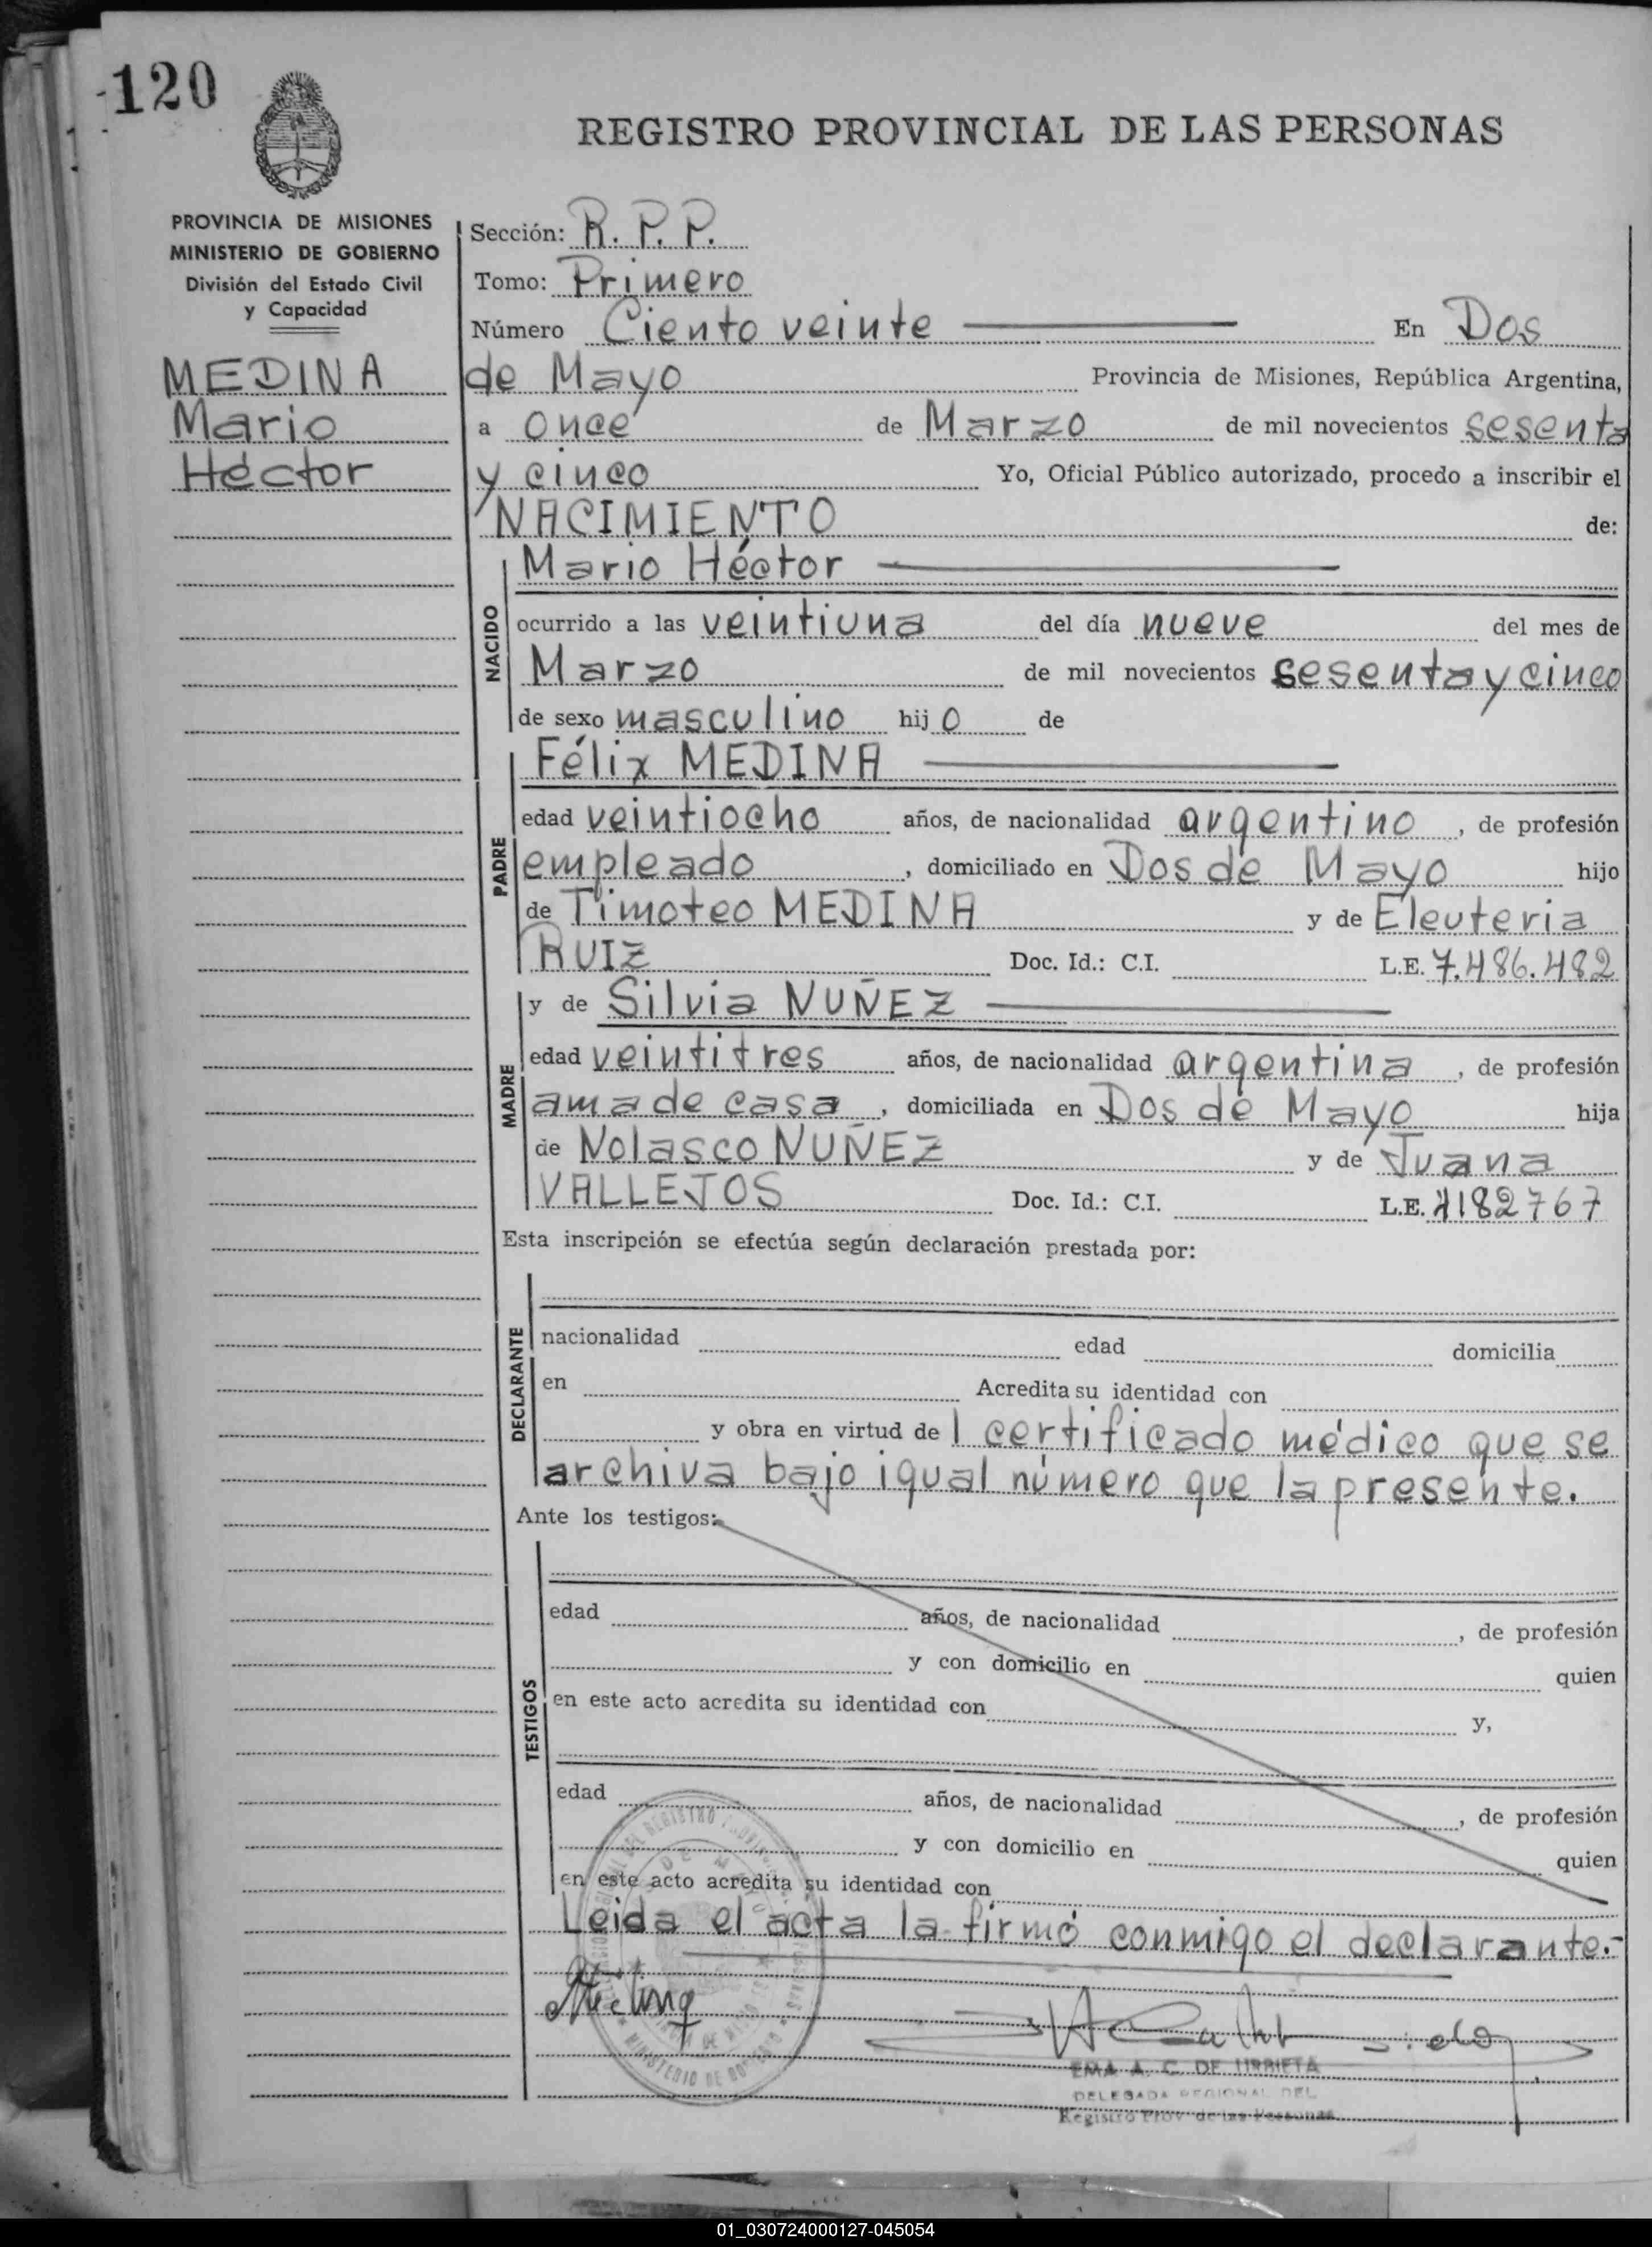 120
REGISTRO PROVINCIAL DE LAS PERSONAS
PROVINCIA DE MISIONES
MINISTERIO DE GOBIERNO
División del Estado Civil
y Capacidad
MEDINA
Mario
Héctor
Sección: R. P. P.
Tomo: Primero
Número Ciento veinte En Dos
de Mayo Provincia de Misiones, República Argentina,
a once de Marzo de mil novecientos sesenta
y cinco Yo, Oficial Público autorizado, procedo a inscribir el
NACIMIENTO de:
NACIDO
Mario Héctor
ocurrido a las veintiuna del día nueve del mes de
Marzo de mil novecientos sesenta y cinco
de sexo masculino hijo de
PADRE
Félix MEDINA
edad veintiocho años, de nacionalidad argentino, de profesión
empleado, domiciliado en Dos de Mayo hijo
de Timoteo MEDINA y de Eleuteria
RUIZ Doc. Id.: C.I. L.E. 7.486.482
MADRE
y de Silvia NUÑEZ
edad veintitres años, de nacionalidad argentina, de profesión
ama de casa, domiciliada en Dos de Mayo hija
de Nolasco NUÑEZ y de Juana
VALLEJOS Doc. Id.: C.I. L.E. 4182767
Esta inscripción se efectúa según declaración prestada por:
DECLARANTE
nacionalidad edad domicilia
en Acredita su identidad con
y obra en virtud de 1 certificado médico que se
archiva bajo igual número que la presente.
Ante los testigos:
TESTIGOS
edad años, de nacionalidad , de profesión
y con domicilio en quien
en este acto acredita su identidad con y,
edad años, de nacionalidad , de profesión
y con domicilio en quien
en este acto acredita su identidad con
Leida el acta la firmó conmigo el declarante.-
EMA A. C. DE URRIETA
DELEGADA REGIONAL DEL
Registro Prov de las Personas
MINISTERIO DE GOBIERNO
01_030724000127-045054